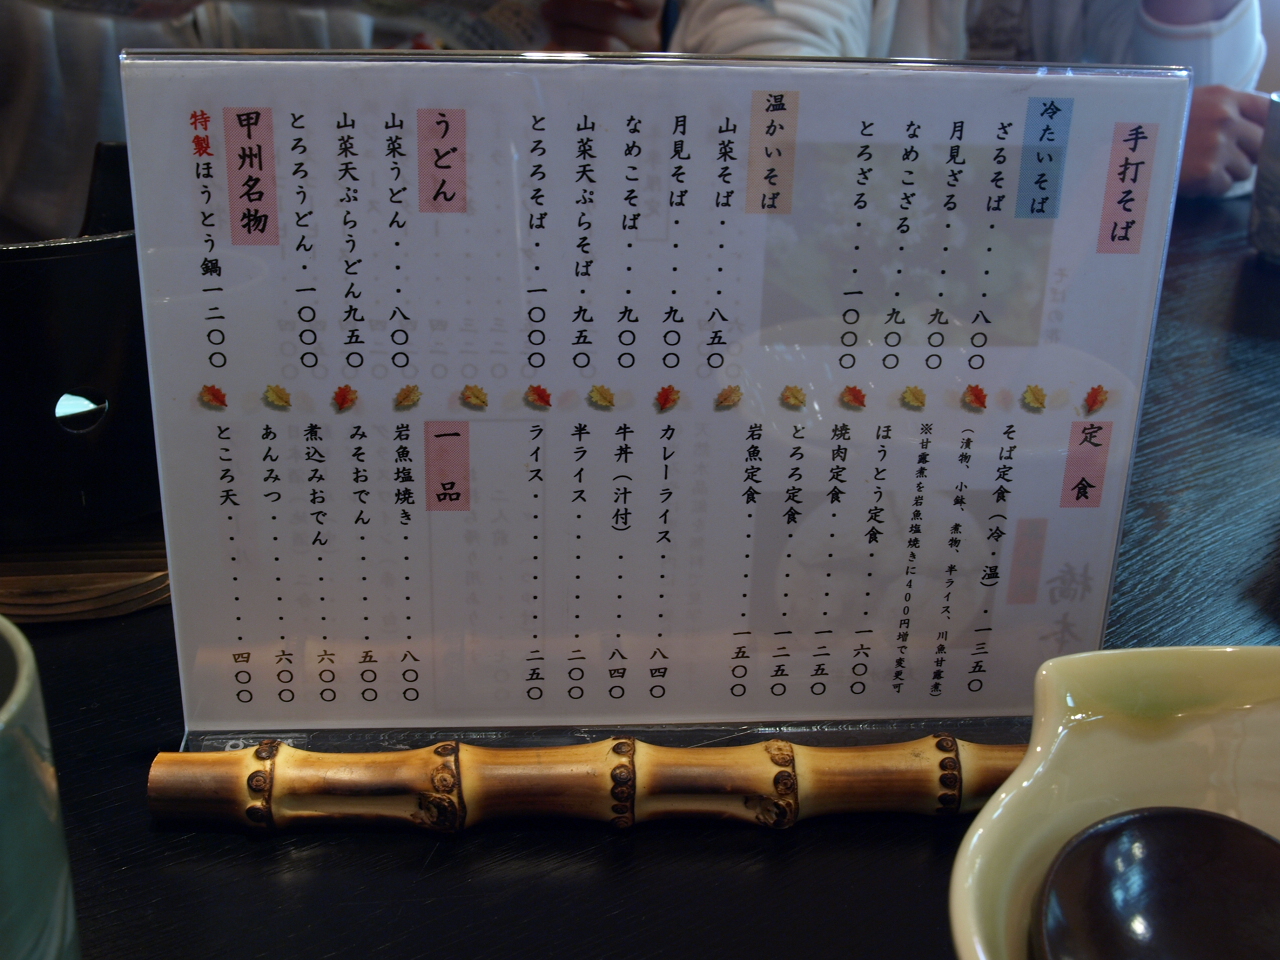 手打そば
冷たいそば
ざるそば・・・・八〇〇
月見ざる・・・九〇〇
なめこざる・・九〇〇
とろざる・・・一〇〇〇
温かいそば
山菜そば・・・・八五〇
月見そば・・・九〇〇
なめこそば・・九〇〇
山菜天ぷらそば・九五〇
とろろそば・・一〇〇〇
うどん
山菜うどん・・・八〇〇
山菜天ぷらうどん九五〇
とろろうどん・一〇〇〇
甲州名物
特製ほうとう鍋一二〇〇
定食
そば定食(冷・温)・一三五〇
(漬物、小鉢、煮物、半ライス、川魚甘露煮)
※甘露煮を岩魚塩焼きに400円増で変更可
ほうとう定食・・・・一六〇〇
焼肉定食・・・・・・一二五〇
とろろ定食・・・・・一二五〇
岩魚定食・・・・・・一五〇〇
カレーライス・・・・・八四〇
牛丼(汁付)・・・・・八四〇
半ライス・・・・・・・二〇〇
ライス・・・・・・・・二五〇
一品
岩魚塩焼き・・・・・・八〇〇
みそおでん・・・・・・五〇〇
煮込みおでん・・・・・六〇〇
あんみつ・・・・・・・六〇〇
ところ天・・・・・・・四〇〇